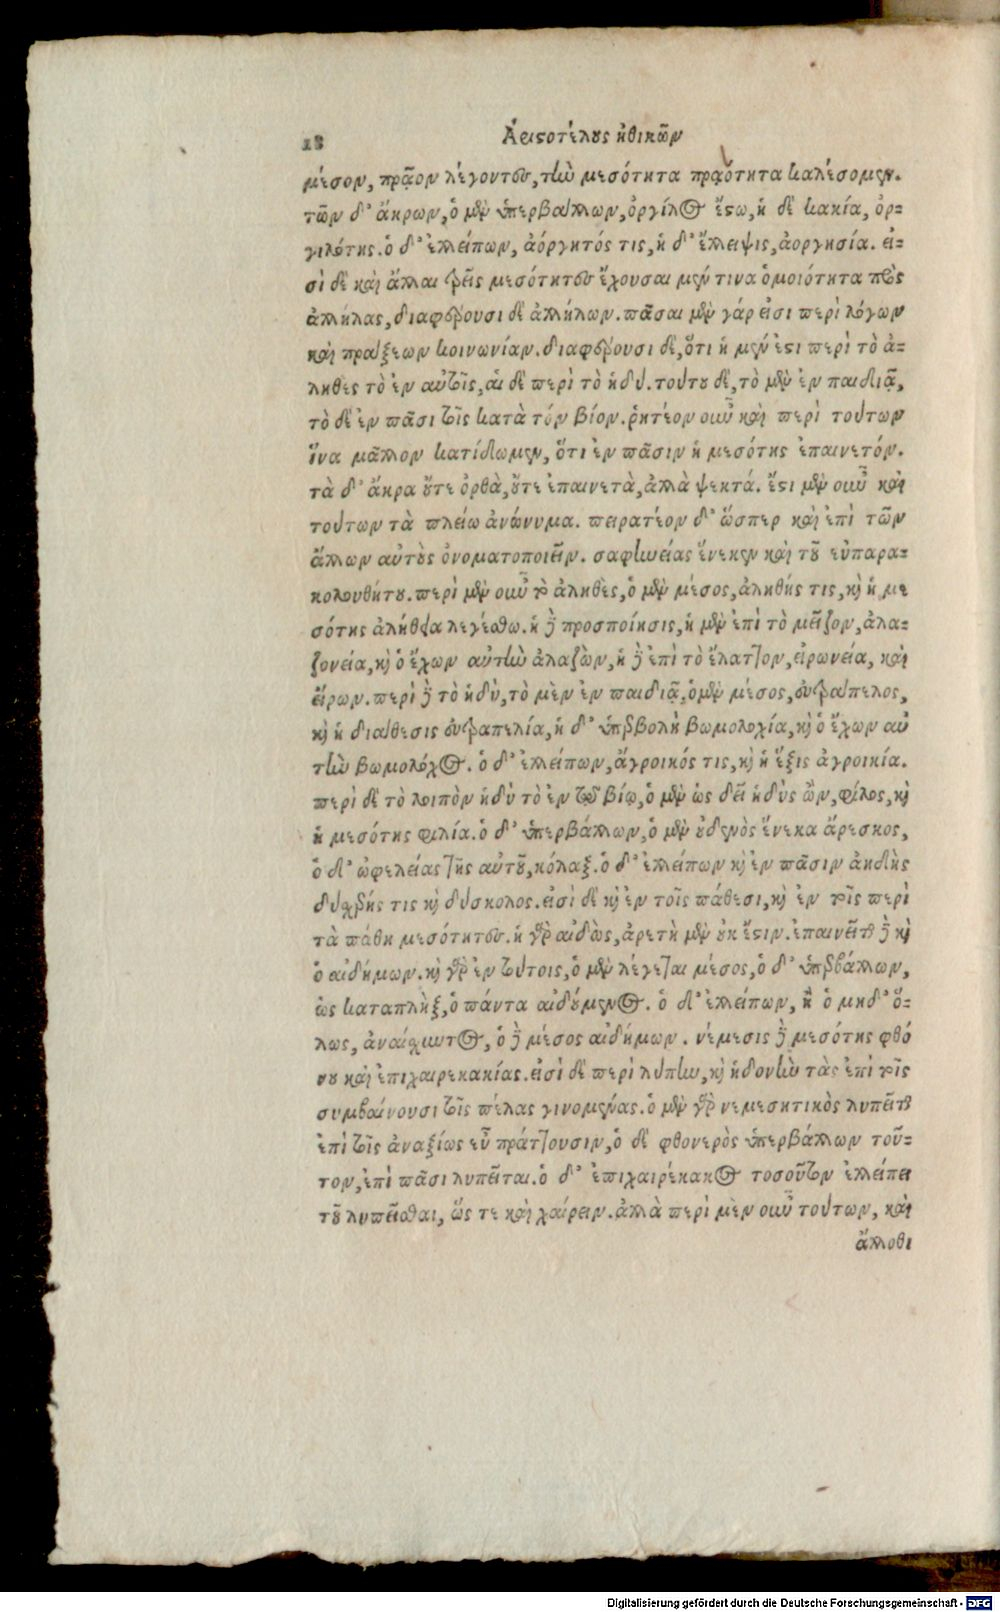 18 Ἀριστοτέλους ἠθικῶν
μέσον, πρᾷον λέγοντες, τὴν μεσότητα πραότητα καλέσομεν.
τῶν δ' ἄκρων, ὁ μὲν ὑπερβάλλων, ὀργίλος ἔστω, ἡ δὲ κακία, ὀρ-
γιλότης. ὁ δ' ἐλλείπων, ἀόργητός τις, ἡ δ' ἔλλειψις, ἀοργησία. εἰ-
σὶ δὲ καὶ ἄλλαι τρεῖς μεσότητες ἔχουσαι μέν τινα ὁμοιότητα πρὸς
ἀλλήλας, διαφέρουσι δὲ ἀλλήλων. πᾶσαι μὲν γάρ εἰσι περὶ λόγων
καὶ πράξεων κοινωνίαν. διαφέρουσι δὲ, ὅτι ἡ μέν ἐστι περὶ τὸ ἀ-
ληθὲς τὸ ἐν αὐτοῖς, αἱ δὲ περὶ τὸ ἡδύ. τούτου δὲ, τὸ μὲν ἐν παιδιᾷ,
τὸ δὲ ἐν πᾶσι τοῖς κατὰ τόν βίον. ῥητέον οὖν καὶ περὶ τούτων
ἵνα μᾶλλον κατίδωμεν, ὅτι ἐν πᾶσιν ἡ μεσότης ἐπαινετόν.
τὰ δ' ἄκρα οὔτε ὀρθὰ, οὔτε ἐπαινετὰ, ἀλλὰ ψεκτά. ἔστι μὲν οὖν καὶ
τούτων τὰ πλείω ἀνώνυμα. πειρατέον δ' ὥσπερ καὶ ἐπὶ τῶν
ἄλλων αὐτοὺς ὀνοματοποιεῖν. σαφηνείας ἕνεκεν καὶ τοῦ εὐπαρα-
κολουθήτου. περὶ μὲν οὖν τὸ ἀληθὲς, ὁ μὲν μέσος, ἀληθής τις, καὶ ἡ με
σότης ἀλήθεια λεγέσθω. ἡ δὲ προσποίησις, ἡ μὲν ἐπὶ τὸ μεῖζον, ἀλα-
ζονεία, καὶ ὁ ἔχων αὐτὴν ἀλαζὼν, ἡ δὲ ἐπὶ τὸ ἔλαττον, εἰρωνεία, καὶ
εἴρων. περὶ δὲ τὸ ἡδὺ, τὸ μὲν ἐν παιδιᾷ, ὁ μὲν μέσος, εὐτράπελος,
καὶ ἡ διάθεσις εὐτραπελία, ἡ δ' ὑπερβολὴ βωμολοχία, καὶ ὁ ἔχων αὐ
τὴν βωμολόχος. ὁ δ' ἐλλείπων, ἄγροικός τις, καὶ ἡ ἕξις ἀγροικία.
περὶ δὲ τὸ λοιπὸν ἡδὺ τὸ ἐν τῷ βίῳ, ὁ μὲν ὡς δεῖ ἡδὺς ὢν, φίλος, καὶ
ἡ μεσότης φιλία. ὁ δ' ὑπερβάλλων, ὁ μὲν οὐδενὸς ἕνεκα ἄρεσκος,
ὁ δ' ὠφελείας τῆς αὑτοῦ, κόλαξ. ὁ δ' ἐλλείπων καὶ ἐν πᾶσιν ἀηδὴς
δύσερίς τις καὶ δύσκολος. εἰσὶ δὲ καὶ ἐν τοῖς πάθεσι, καὶ ἐν τοῖς περὶ
τὰ πάθη μεσότητες. ἡ γὰρ αἰδὼς, ἀρετὴ μὲν οὐκ ἔστιν. ἐπαινεῖται δὲ καὶ
ὁ αἰδήμων. καὶ γὰρ ἐν τούτοις, ὁ μὲν λέγεται μέσος, ὁ δ' ὑπερβάλλων,
ὡς καταπλὴξ, ὁ πάντα αἰδούμενος. ὁ δ' ἐλλείπων, ἢ ὁ μηδ' ὅ-
λως, ἀναίσχυντος, ὁ δὲ μέσος αἰδήμων. νέμεσις δὲ μεσότης φθό
νου καὶ ἐπιχαιρεκακίας. εἰσὶ δὲ περὶ λύπην, καὶ ἡδονὴν τὰς ἐπὶ τοῖς
συμβαίνουσι τοῖς πέλας γινομένας. ὁ μὲν γὰρ νεμεσητικὸς λυπεῖται
ἐπὶ τοῖς ἀναξίως εὖ πράττουσιν, ὁ δὲ φθονερὸς ὑπερβάλλων τοῦ-
τον, ἐπὶ πᾶσι λυπεῖται. ὁ δ' ἐπιχαιρέκακος τοσοῦτον ἐλλείπει
τοῦ λυπεῖσθαι, ὥς τε καὶ χαίρειν. ἀλλὰ περὶ μὲν οὖν τούτων, καὶ
ἄλλοθι
Digitalisierung gefördert durch die Deutsche Forschungsgemeinschaft - DFG